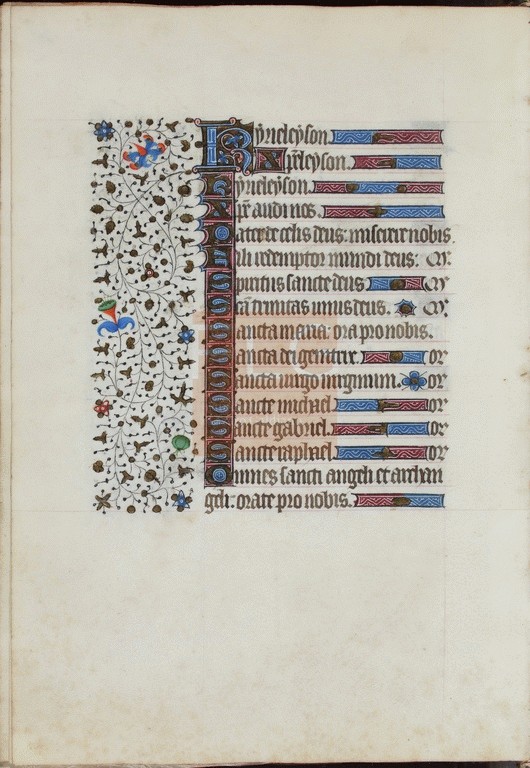 Kyrieleyson.
Xp̄eleyson.
Kyrieleyson.
Xp̄e audi nos.
Pater de celis deus: miserere nobis.
Fili redemptor mundi deus: M̄.
Spiritus sancte deus M̄
Sc̄a trinitas unus deus. M̄.
Sancta maria: ora pro nobis.
Sancta dei genitrix. or
Sancta uirgo uirginum. or
Sancte michael or
Sancte gabriel. or
Sancte raphael. or
Omnes sancti angeli et archan
geli: orate pro nobis.